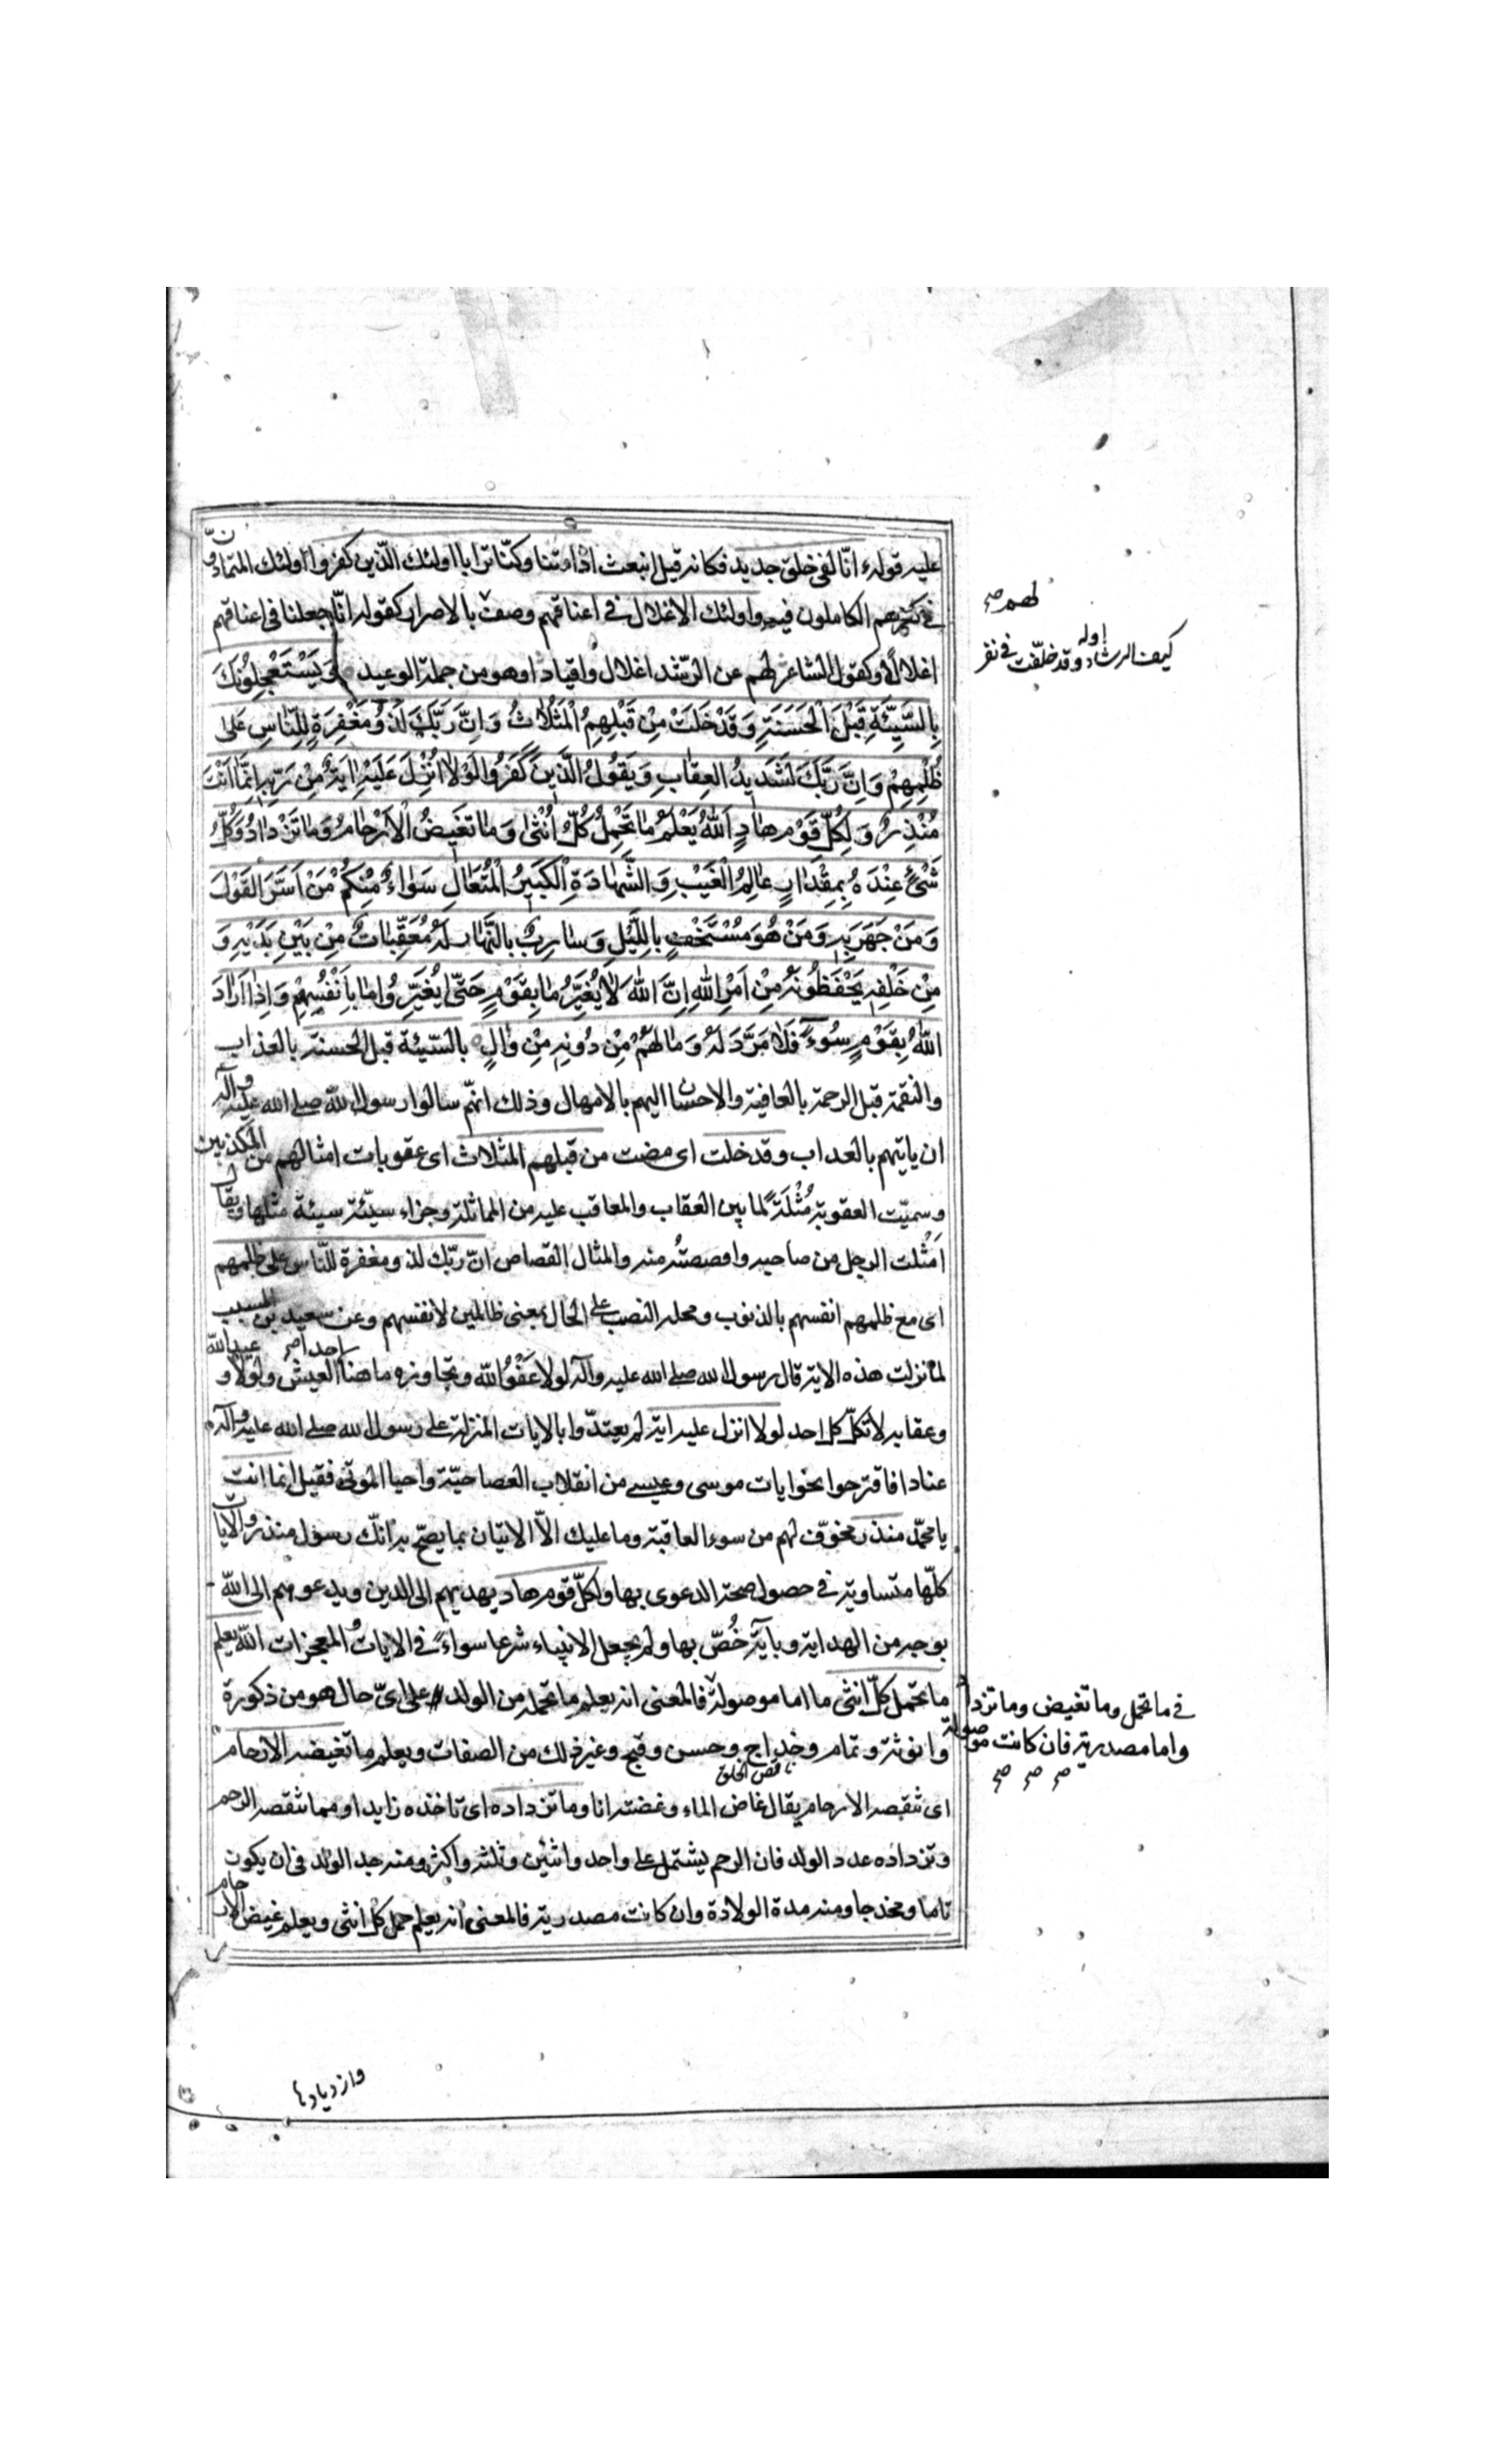 عليه قوله ءانّا لفى خلق جديد فكانه قيل انبعث اذا متنا وكنّا ترابا اولئك الّذين كفروا اولئك المتمادون
فى كفرهم الكاملون فيه واولئك الاغلال فى اعناقهم وصف بالاصرار كقوله انّا جعلنا فى اعناقهم
اغلالا وكقول الشاعر لهم عن الرّشد اغلال واقياد او هو من جملة الوعيد وَيَسْتَعْجِلُونَكَ
بِالسَّيِّئَةِ قَبْلَ الْحَسَنَةِ وَقَدْ خَلَتْ مِنْ قَبْلِهِمُ الْمَثُلَاتُ وَاِنَّ رَبَّكَ لَذُو مَغْفِرَةٍ لِلنّاسِ عَلى
ظُلْمِهِمْ وَاِنَّ رَبَّكَ لَشَدِيدُ العِقابِ وَيَقُولُ الَّذِينَ كَفَرُوا لَوْلا اُنْزِلَ عَلَيْهِ ايَةٌ مِنْ رَبِّهِ اِنَّما اَنْتَ
مُنْذِرٌ وَلِكُلِّ قَوْمٍ هادٍ اَللّٰهُ يَعْلَمُ ما تَحْمِلُ كُلُّ اُنْثى وَما تَغيضُ الْاَرْحامُ وَما تَزْدادُ وَكُلُّ
شَيْءٍ عِنْدَهُ بِمِقْدارٍ عالِمُ الْغَيْبِ وَالشَّهادَةِ الْكَبيرُ الْمُتَعالِ سَواءٌ مِنْكُمْ مَنْ اَسَرَّ القَوْلَ
وَمَنْ جَهَرَ بِهِ وَمَنْ هُوَ مُسْتَخْفٍ بِاللَّيْلِ وَسارِبٌ بِالنَّهارِ لَهُ مُعَقِّباتٌ مِنْ بَيْنِ يَدَيْهِ وَ
مِنْ خَلْفِهِ يَحْفَظُونَهُ مِنْ اَمْرِ اللّٰهِ اِنَّ اللّٰهَ لا يُغَيِّرُ ما بِقَوْمٍ حَتّى يُغَيِّرُوا ما بِاَنْفُسِهِمْ وَاِذا اَرادَ
اللّٰهُ بِقَوْمٍ سُوءً فَلا مَرَدَّ لَهُ وَما لَهُمْ مِنْ دُونِهِ مِنْ والٍ بالسّيئة قبل الحسنة بالعذاب
والنقمة قبل الرحمة بالعافية والاحسان اليهم بالامهال وذلك انهم سالوا رسول الله صلى الله عليه وآله
ان ياتيهم بالعداب وقد خلت اى مضت من قبلهم المثلاث اى عقوبات امثالهم من المكذبين
وسميّت العقوبة مُثْلَةً لما بين العقاب والمعاقب عليه من المماثلة وجزاء سيّئة سيئة مثلها ويقال
اَمْثلت الرجل من صاحبه واقصصته منه والمثال القصاص انّ ربّك لذو مغفرة للنّاس على ظلمهم
اى مع ظلمهم انفسهم بالذنوب ومحله النصب على الحال بمعنى ظالمين لانفسهم وعن سعيد بن المسيب
لما نزلت هذه الاية قال رسول الله صلى الله عليه وآله لولا عَفْوُ اللّه وتجاوزه ما هنا احدا العيش ولولا وعيد الله
وعقابه لاتّكل كل احد لولا انزل عليه اية لم يعتدّوا بالايات المنزلة على رسول الله صلى الله عليه وآله
عنادا فاقترحوا نحو ايات موسى وعيسى من انقلاب العصا حيّة واحيا الموتى فقيل انما انت
يا محمّد منذر مخوّف لهم من سوء العاقبة وما عليك الاّ الاتيان بما يصحّ به انّك رسول منذر والايات
كلّها متساوية فى حصول صحة الدعوى بها ولكلّ قوم هاد يهديهم الى الدين ويدعوهم الى اللّه
بوجه من الهداية وبآية خُصّ بها ولم يجعل الانبياء شرعا سواءً فى الايات والمعجزات اللّه يعلم
ما تحمل كلّ انثى ما اما موصولة فالمعنى انه يعلم ما تحمله من الولد على اىّ حال هو من ذكورة
وانوثة وتمام وخداج وحسن وقبح وغير ذلك من الصفات ويعلم ما تغيضه الارحام
ناقص الخلق
اى تنقصه الارحام يقال غاض الماء وغضته انا وما تزداده اى تاخذه زايدا ومما تنقصه الرحم
وتزداده عدد الولد فان الرحم يشتمل على واحد واثنين وثلثة واكثر ومنه جد الولد فى ان يكون
تاما ومخدجا ومنه مدة الولادة وان كانت مصدرية فالمعنى انه يعلم حمل كل انثى ويعلم غيض الارحام
لهم صح
اوله
كيف الرشاد وقد خلّفت فى نفر
فى ما تحمل وما تغيض وما تزداد
واما مصدرية فان كانت موصولة
صح صح صح
وازديادها